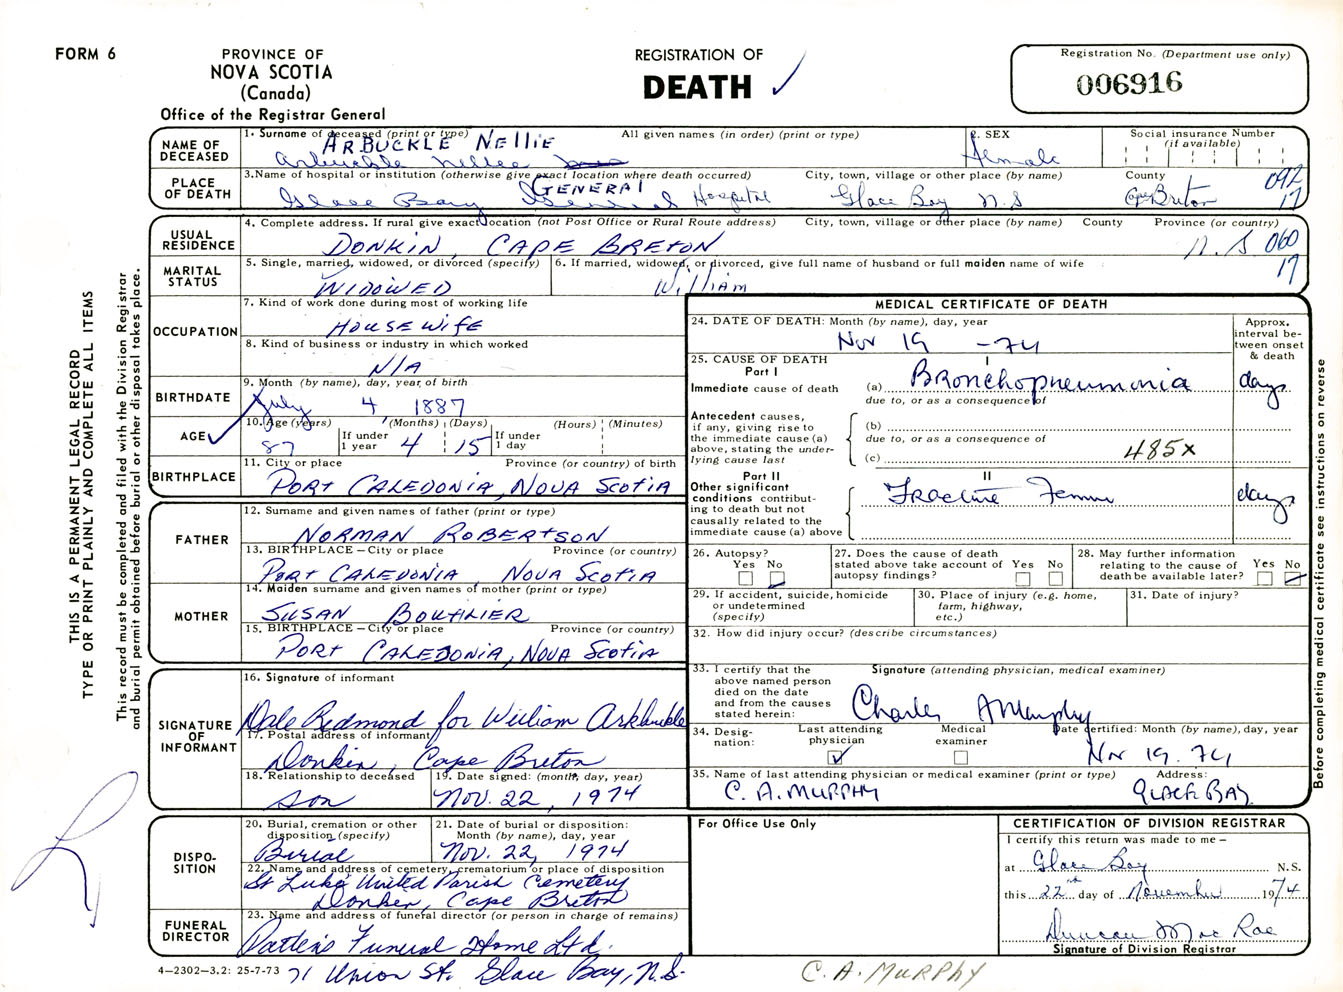 FORM 6
PROVINCE OF
NOVA SCOTIA
(Canada)
Office of the Registrar General
REGISTRATION OF
DEATH ✓
Registration No. (Department use only)
006916
THIS IS A PERMANENT LEGAL RECORD
TYPE OR PRINT PLAINLY AND COMPLETE ALL ITEMS
This record must be completed and filed with the Division Registrar
and burial permit obtained before burial or other disposal takes place.
NAME OF DECEASED
1. Surname of deceased (print or type) All given names (in order) (print or type)
ARBUCKLE NELLIE
Arbuckle Nellie
2. SEX
Female
Social insurance Number
(if available)
PLACE OF DEATH
3. Name of hospital or institution (otherwise give exact location where death occurred) City, town, village or other place (by name) County
GENERAL
Glace Bay General Hospital Glace Bay N.S Cape Breton
092
17
USUAL RESIDENCE
4. Complete address. If rural give exact location (not Post Office or Rural Route address) City, town, village or other place (by name) County Province (or country)
DONKIN, CAPE BRETON N.S 060
17
MARITAL STATUS
5. Single, married, widowed, or divorced (specify)
WIDOWED
6. If married, widowed, or divorced, give full name of husband or full maiden name of wife
William
OCCUPATION
7. Kind of work done during most of working life
HOUSEWIFE
8. Kind of business or industry in which worked
N/A
BIRTHDATE
9. Month (by name), day, year, of birth
July 4, 1887
AGE ✓
10. Age (years) (Months) (Days) (Hours) (Minutes)
87 If under 1 year 4 15 If under 1 day
BIRTHPLACE
11. City or place Province (or country) of birth
PORT CALEDONIA, NOVA SCOTIA
FATHER
12. Surname and given names of father (print or type)
NORMAN ROBERTSON
13. BIRTHPLACE – City or place Province (or country)
PORT CALEDONIA, NOVA SCOTIA
MOTHER
14. Maiden surname and given names of mother (print or type)
SUSAN BOUTILIER
15. BIRTHPLACE – City or place Province (or country)
PORT CALEDONIA, NOVA SCOTIA
SIGNATURE OF INFORMANT
16. Signature of informant
Dale Redmond for William Arkbuckle
17. Postal address of informant
Donkin, Cape Breton
18. Relationship to deceased
son
19. Date signed: (month, day, year)
NOV. 22, 1974
DISPOSITION
20. Burial, cremation or other disposition (specify)
Burial
21. Date of burial or disposition: Month (by name), day, year
Nov. 22, 1974
22. Name and address of cemetery, crematorium or place of disposition
St Luke United Parish Cemetery
Donkin, Cape Breton
FUNERAL DIRECTOR
23. Name and address of funeral director (or person in charge of remains)
Patten's Funeral Home Ltd.
71 Union St. Glace Bay, N.S.
4–2302–3.2: 25-7-73
MEDICAL CERTIFICATE OF DEATH
24. DATE OF DEATH: Month (by name), day, year
Nov 19 -74
Approx. interval between onset & death
25. CAUSE OF DEATH
Part I
I
Immediate cause of death (a) Bronchopneumonia days
due to, or as a consequence of
Antecedent causes, if any, giving rise to the immediate cause (a) above, stating the underlying cause last
(b)
due to, or as a consequence of
(c) 485x
Part II
II
Other significant conditions contributing to death but not causally related to the immediate cause (a) above
Fracture Femur days
26. Autopsy? Yes No
27. Does the cause of death stated above take account of autopsy findings? Yes No
28. May further information relating to the cause of death be available later? Yes No
29. If accident, suicide, homicide or undetermined (specify)
30. Place of injury (e.g. home, farm, highway, etc.)
31. Date of injury?
32. How did injury occur? (describe circumstances)
33. I certify that the above named person died on the date and from the causes stated herein:
Signature (attending physician, medical examiner)
Charles A Murphy
34. Designation: Last attending physician ✓ Medical examiner
Date certified: Month (by name), day, year
Nov 19. 74
35. Name of last attending physician or medical examiner (print or type) Address:
C. A. MURPHY GLACE BAY
Before completing medical certificate see instructions on reverse
For Office Use Only
CERTIFICATION OF DIVISION REGISTRAR
I certify this return was made to me –
at Glace Bay N.S.
this 22nd day of November 1974
Duncan MacRae
Signature of Division Registrar
C. A. MURPHY